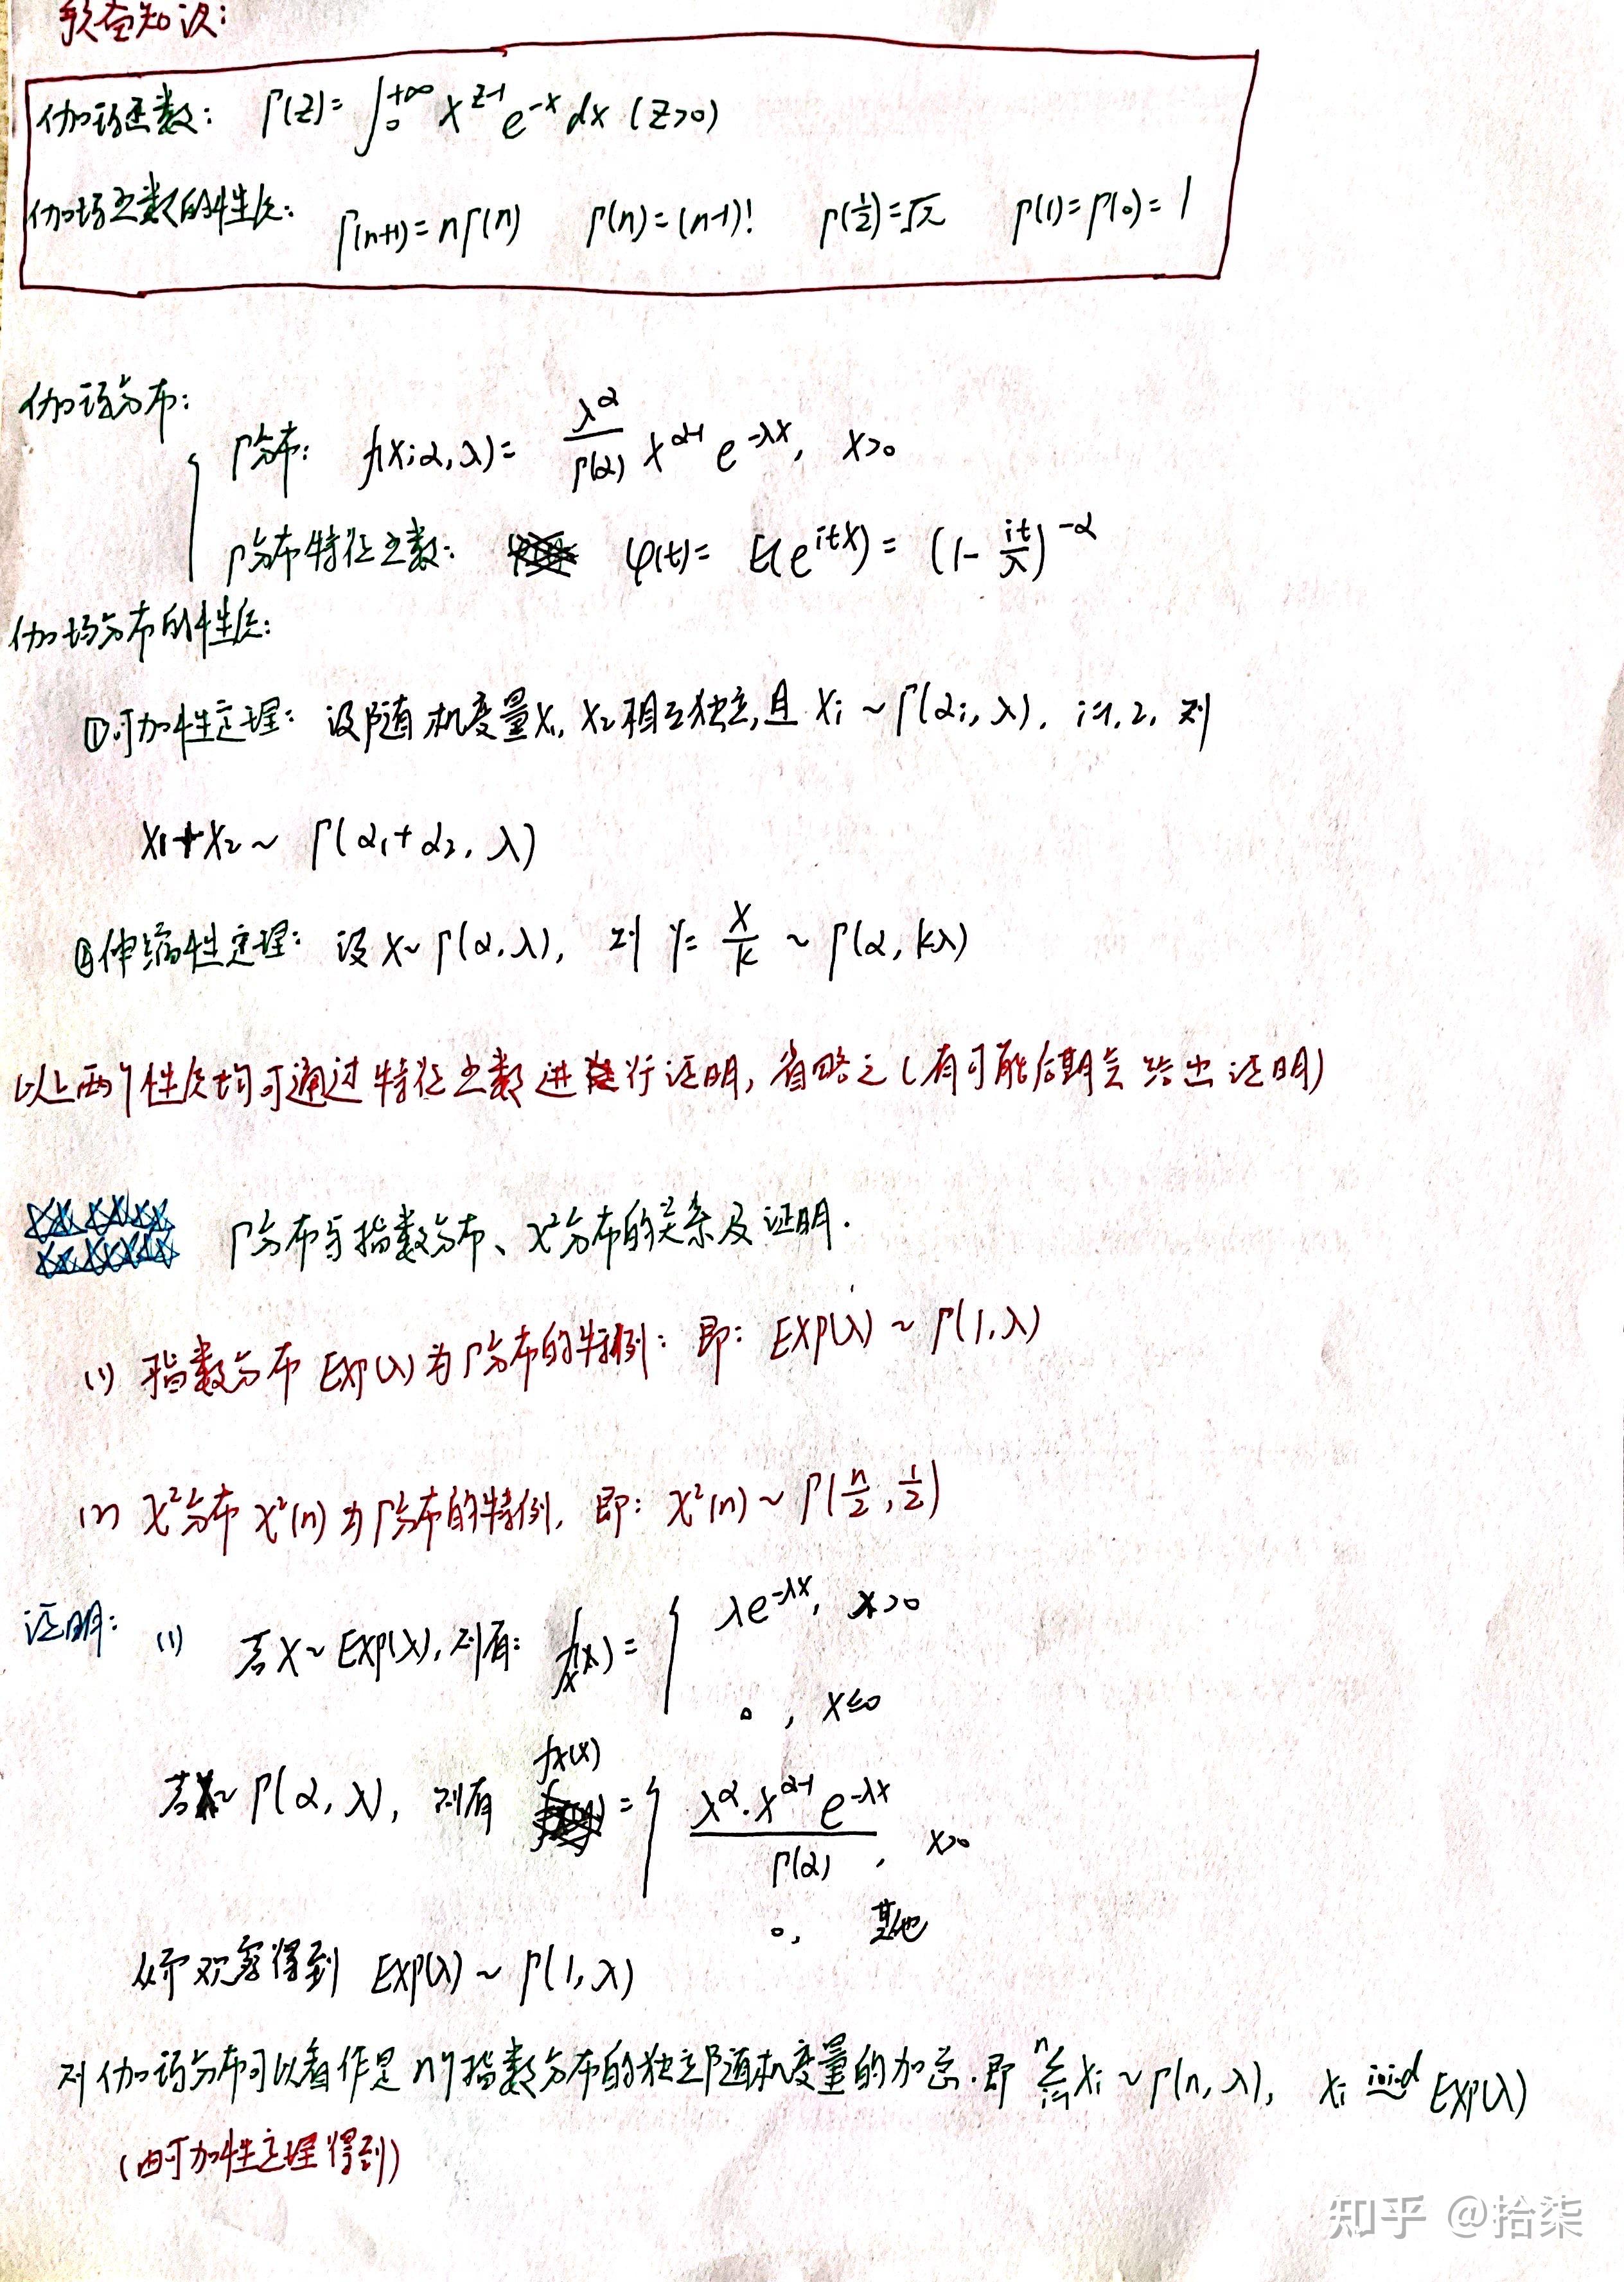 预备知识:
伽玛函数: Γ(z)=∫₀^{+∞} x^{z-1} e^{-x} dx (z>0)
伽玛函数的性质: Γ(n+1)=nΓ(n) Γ(n)=(n-1)! Γ(1/2)=√π Γ(1)=Γ(0)=1
伽玛分布:
Γ分布: f(x;α,λ)= λ^α/Γ(α) x^{α-1} e^{-λx}, x>0
Γ分布特征函数: φ(t)= E(e^{itX})= (1- it/λ)^{-α}
伽玛分布的性质:
①可加性定理: 设随机变量X₁, X₂相互独立,且 Xi ~ Γ(αi, λ), i=1,2, 则
X₁+X₂ ~ Γ(α₁+α₂, λ)
②伸缩性定理: 设 X~Γ(α,λ), 则 Y= X/k ~ Γ(α, kλ)
以上两个性质均可通过特征函数进行证明,省略之(有可能后期会给出证明)
Γ分布与指数分布、χ²分布的关系及证明.
(1) 指数分布 Exp(λ)为Γ分布的特例: 即: Exp(λ) ~ Γ(1,λ)
(2) χ²分布 χ²(n)为Γ分布的特例, 即: χ²(n) ~ Γ(n/2, 1/2)
证明: (1) 若X~Exp(λ),则有: fx(x)= { λe^{-λx}, x>0
0, x≤0
若X~Γ(α,λ), 则有 fx(x)= { λ^α·x^{α-1} e^{-λx}/Γ(α), x>0
0, 其他
从而观察得到 Exp(λ) ~ Γ(1,λ)
则伽玛分布可以看作是n个指数分布的独立随机变量的加总.即 Σ_{i=1}^{n} Xi ~ Γ(n,λ), Xi i.i.d Exp(λ)
(由可加性定理得到)
知乎 @拾柒